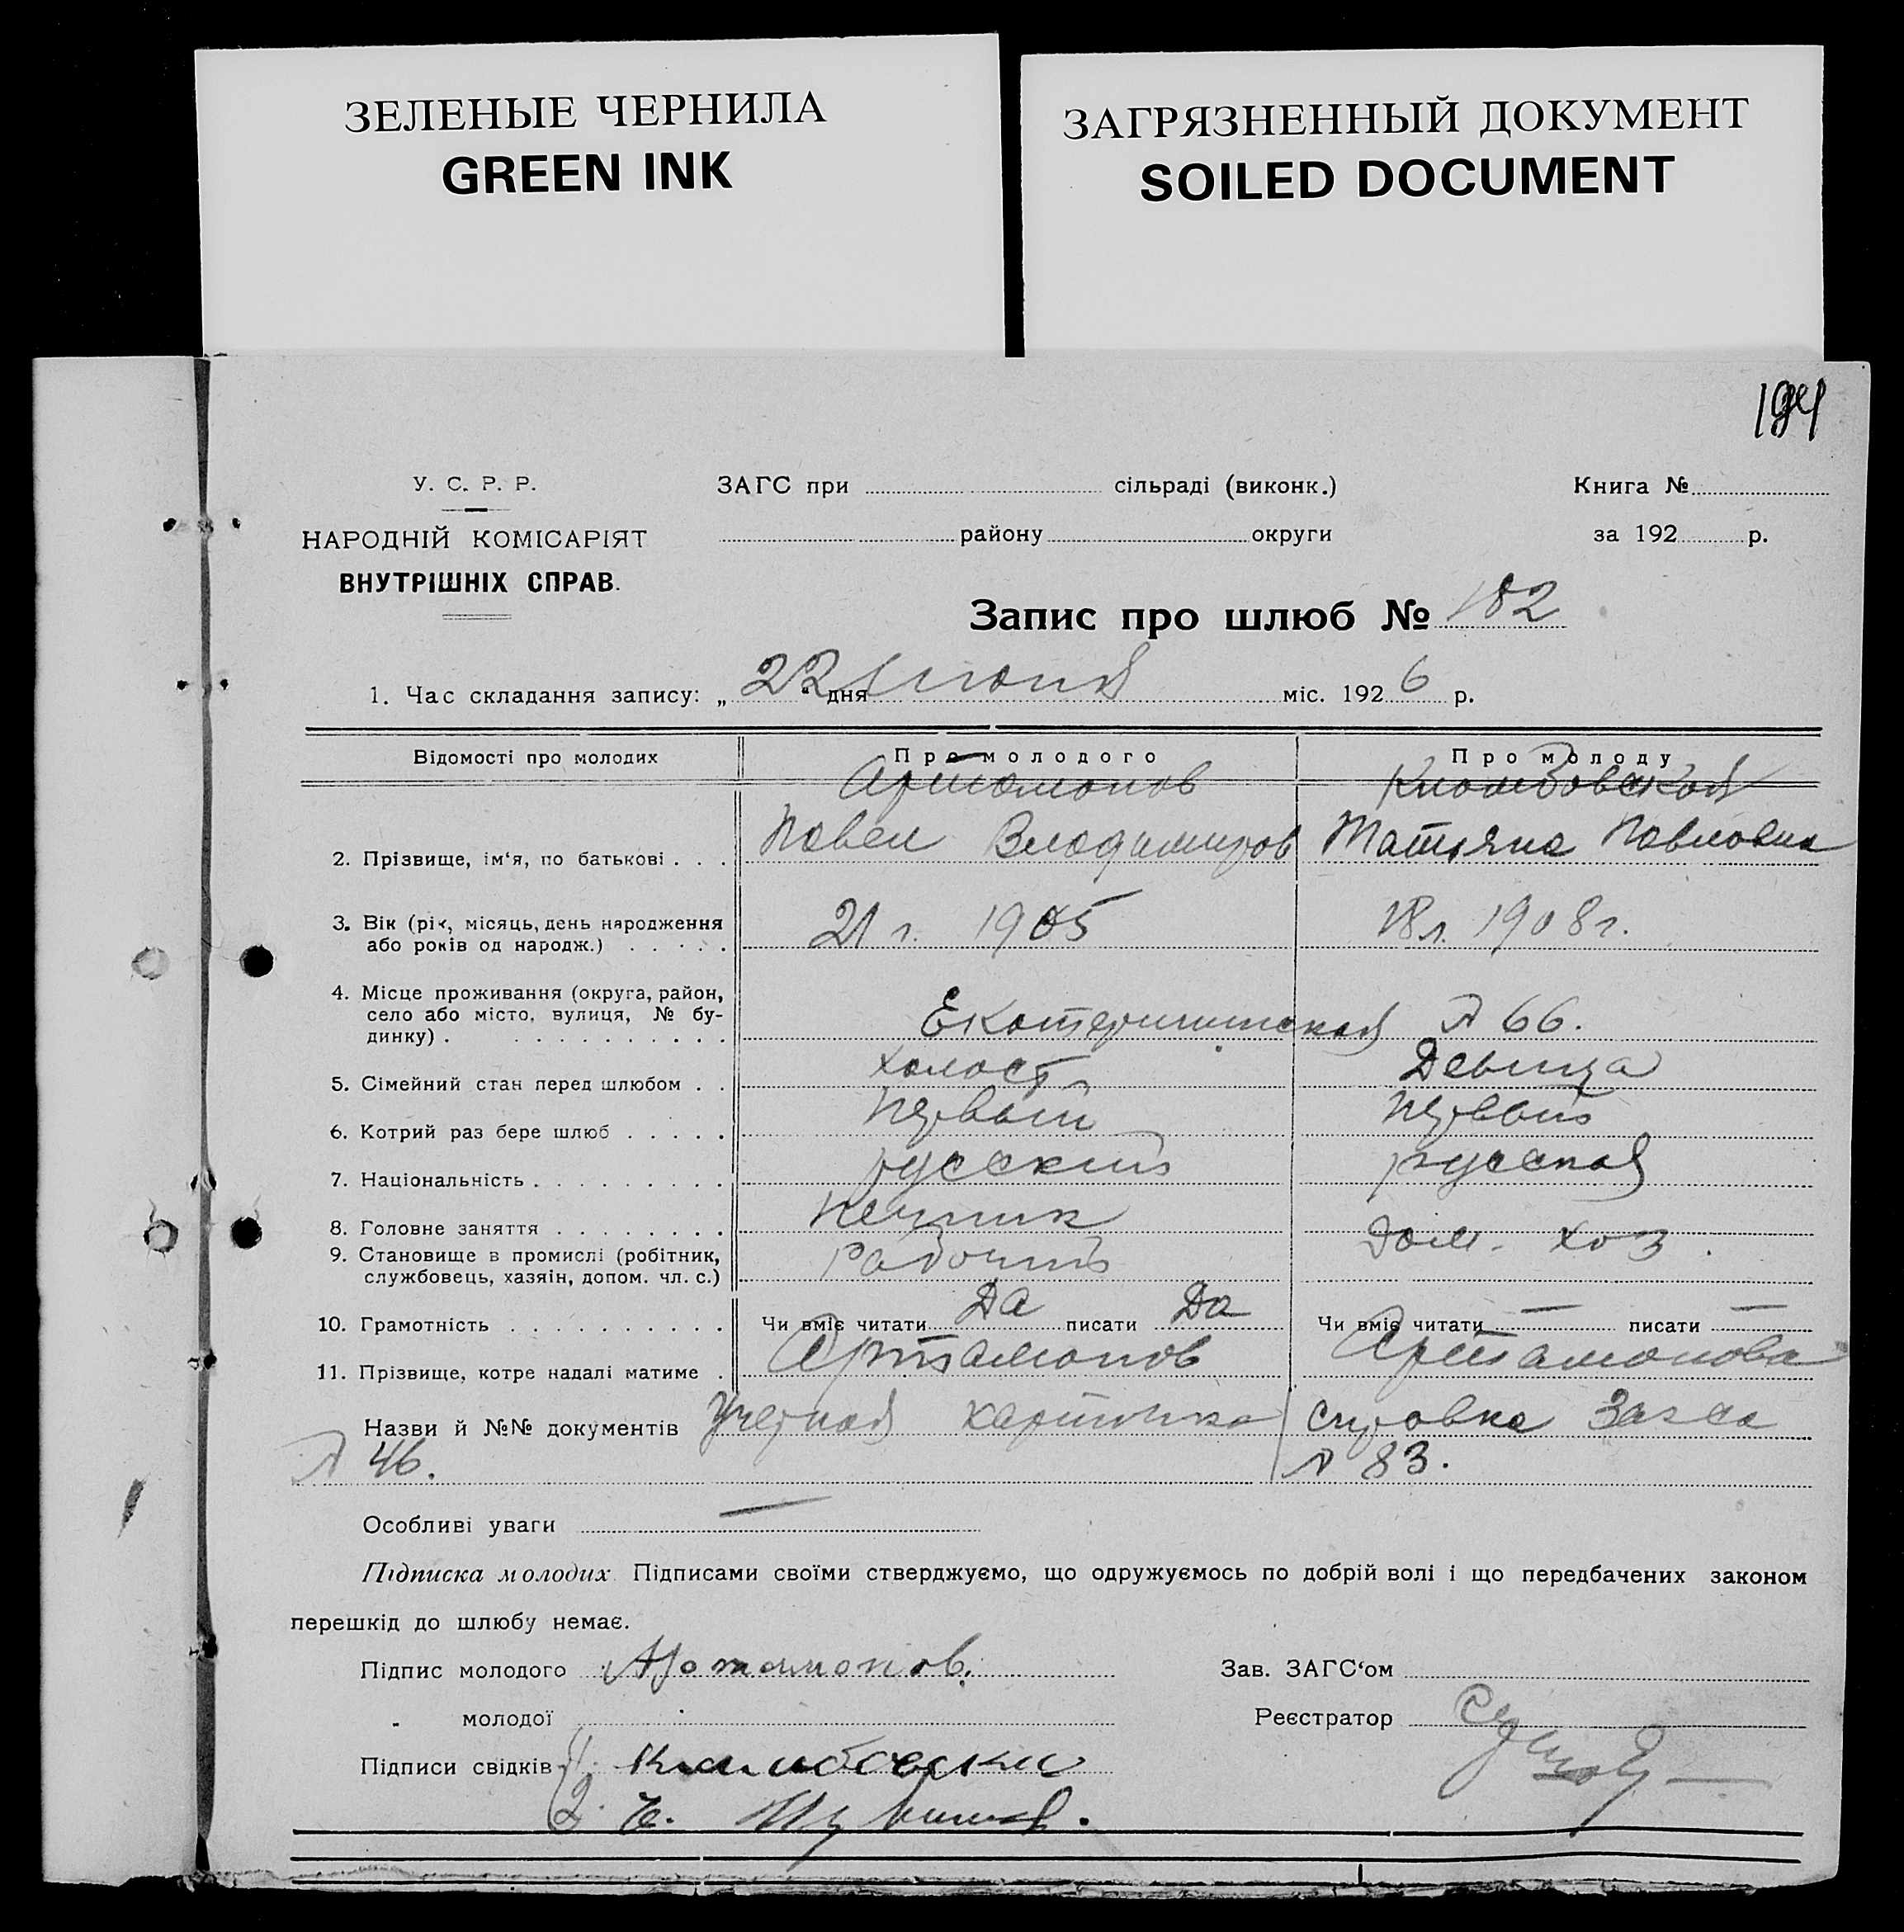 ЗЕЛЕНЫЕ ЧЕРНИЛА
GREEN INK
ЗАГРЯЗНЕННЫЙ ДОКУМЕНТ
SOILED DOCUMENT
У. С. Р. Р.
НАРОДНІЙ КОМІСАРІЯТ
ВНУТРІШНІХ СПРАВ.
ЗАГС при сільраді (виконк.)
району округи
Книга №
за 192 р.
Запис про шлюб № 182
1. Час складання запису: „22“ дня июня міс. 1926 р.
Відомості про молодих Про молодого Про молоду
Артамонов
2. Прізвище, ім‘я, по батькові . . . Павел Владимиров Татьяна Павловна
3. Вік (рік, місяць, день народження 21 г. 1905 18 л. 1908 г.
або років од народж.) . . . . .
4. Місце проживання (округа, район,
село або місто, вулиця, № бу-
динку) . . . . . . . . . . . Екатерининская № 66.
5. Сімейний стан перед шлюбом . . холост Девица
6. Котрий раз бере шлюб . . . . . первый первый
7. Національність . . . . . . . . . русский русская
8. Головне заняття . . . . . . . . печник дом. хоз.
9. Становище в промислі (робітник, рабочий
службовець, хазяїн, допом. чл. с.)
10. Грамотність . . . . . . . . . . Чи вміє читати Да писати Да Чи вміє читати — писати —
11. Прізвище, котре надалі матиме . Артамонов Артамонова
Назви й №№ документів Учетная карточка справка Загса
№ 46. № 83.
Особливі уваги —
Підписка молодих Підписами своїми стверджуємо, що одружуємось по добрій волі і що передбачених законом
перешкід до шлюбу немає.
Підпис молодого Артамонов. Зав. ЗАГС‘ом
„ молодої Реєстратор
Підписи свідків 1.
2.